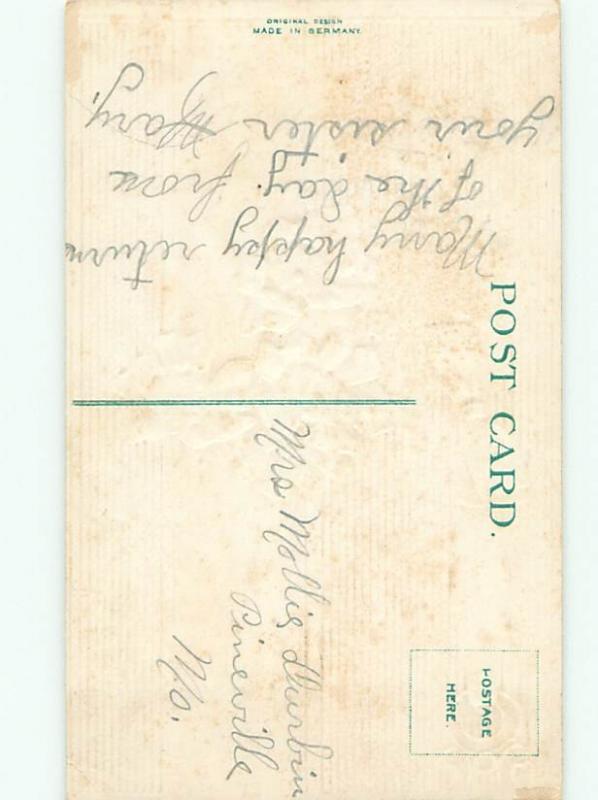 ORIGINAL DESIGN
MADE IN GERMANY.
POST CARD.
Many happy return
of the day. from
your sister Mary.
Mrs Mollie Durbin
Pineville
Mo.
POSTAGE
HERE.